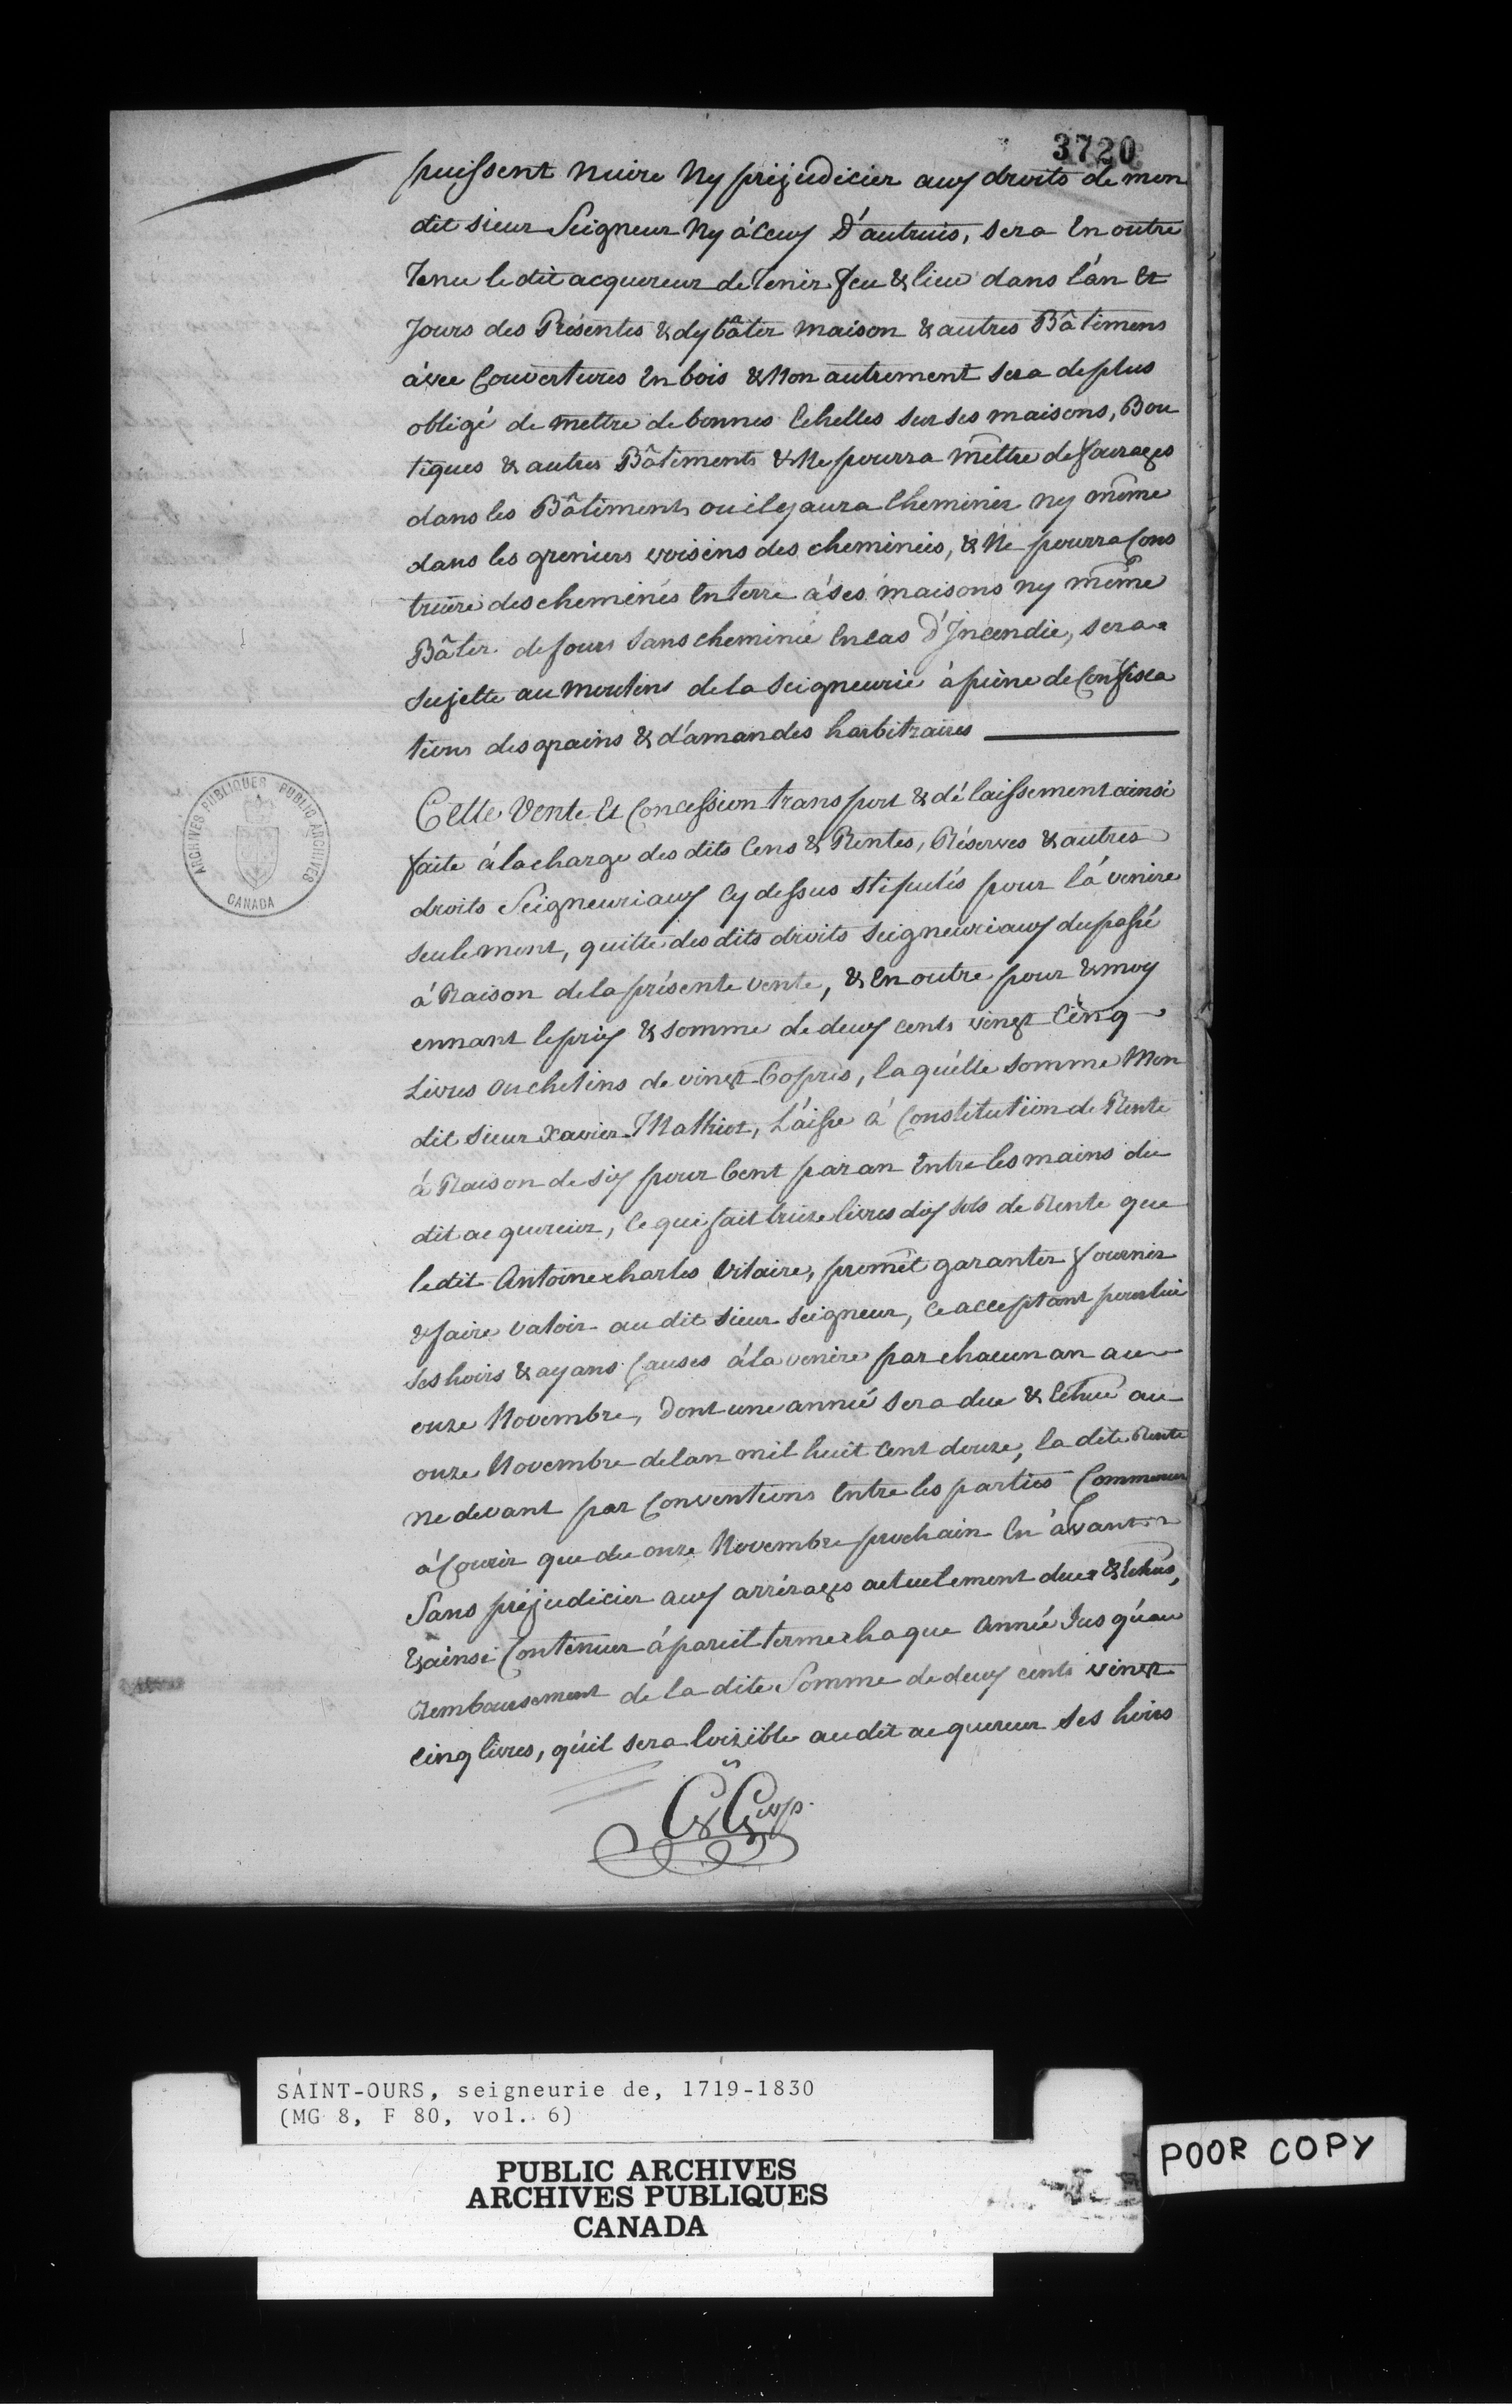 3720
puissent nuire Ny préjudicier aux droits de mon
dit sieur Seigneur Ny à Ceux D'autruis, sera En outre
Tenu le dit acquereur de Tenir feu & lieu dans l'an Et
Jours des Présentes & dy bâtir maison & autres Bâtimens
àvec Couvertures En bois & Non autrement sera de plus
obligé de mettre de bonnes Echelles sur ses maisons, Bou
tiques & autres Bâtiments & Ne pourra mettre de fourages
dans les Bâtiments ou il y aura Cheminée ny même
dans les greniers voisins des cheminées, & Ne pourra Cons
truire des cheminés En terre à ses maisons ny même
Bâtir de fours sans cheminée En cas d'Incendie, sera
sujette au Moulins de la Seigneurie à peine de Confisca
tions des grains & d'amandes harbitraires
Cette Vente Et Concession transport & délaissement ainsi
faite à la charge des dits Cens & Rentes, Réserves & autres
droits Seigneuriaux Cy dessus stipulés pour l'à venire
seulement, quitte des dits droits seigneuriaux du passé
à Raison de la présente vente, & En outre pour & moy
ennant le prix & somme de deux cents vingt Cinq
Livres ou chelins de vingt Coprès, laquélle somme Mon
dit sieur Xavier Malhiot, Láisse à Constitution de Rente
à Raison de six pour Cent par an Entre les mains du
dit acquereur, Ce qui fait treize livres dix sols de Rente que
le dit Antoine charles Vilaire, promet garantir fournir
& faire valoir au dit sieur seigneur, Ce acceptant pour lui
ses hoirs & ayans Causes à la venire par chacun an au
onze Novembre, Dont une année sera due & Echue au
onze Novembre de lan mil huit Cent douze, la dite Rente
ne devant par Conventions Entre les parties Commencer
à Courir que du onze Novembre prochain En àvant
Sans préjudicier aux arrérages actuelement dues & Echus,
& ainsi Continuer à pareil terme chaque Année Jusqu'au
Remboursement de la dite Somme de deux cents vingt
cinq livres, qu'il sera loizible au dit acquereur ses hoirs
ARCHIVES PUBLIQUES PUBLIC ARCHIVES
CANADA
SAINT-OURS, seigneurie de, 1719-1830
(MG 8, F 80, vol. 6)
PUBLIC ARCHIVES
ARCHIVES PUBLIQUES
CANADA
POOR COPY